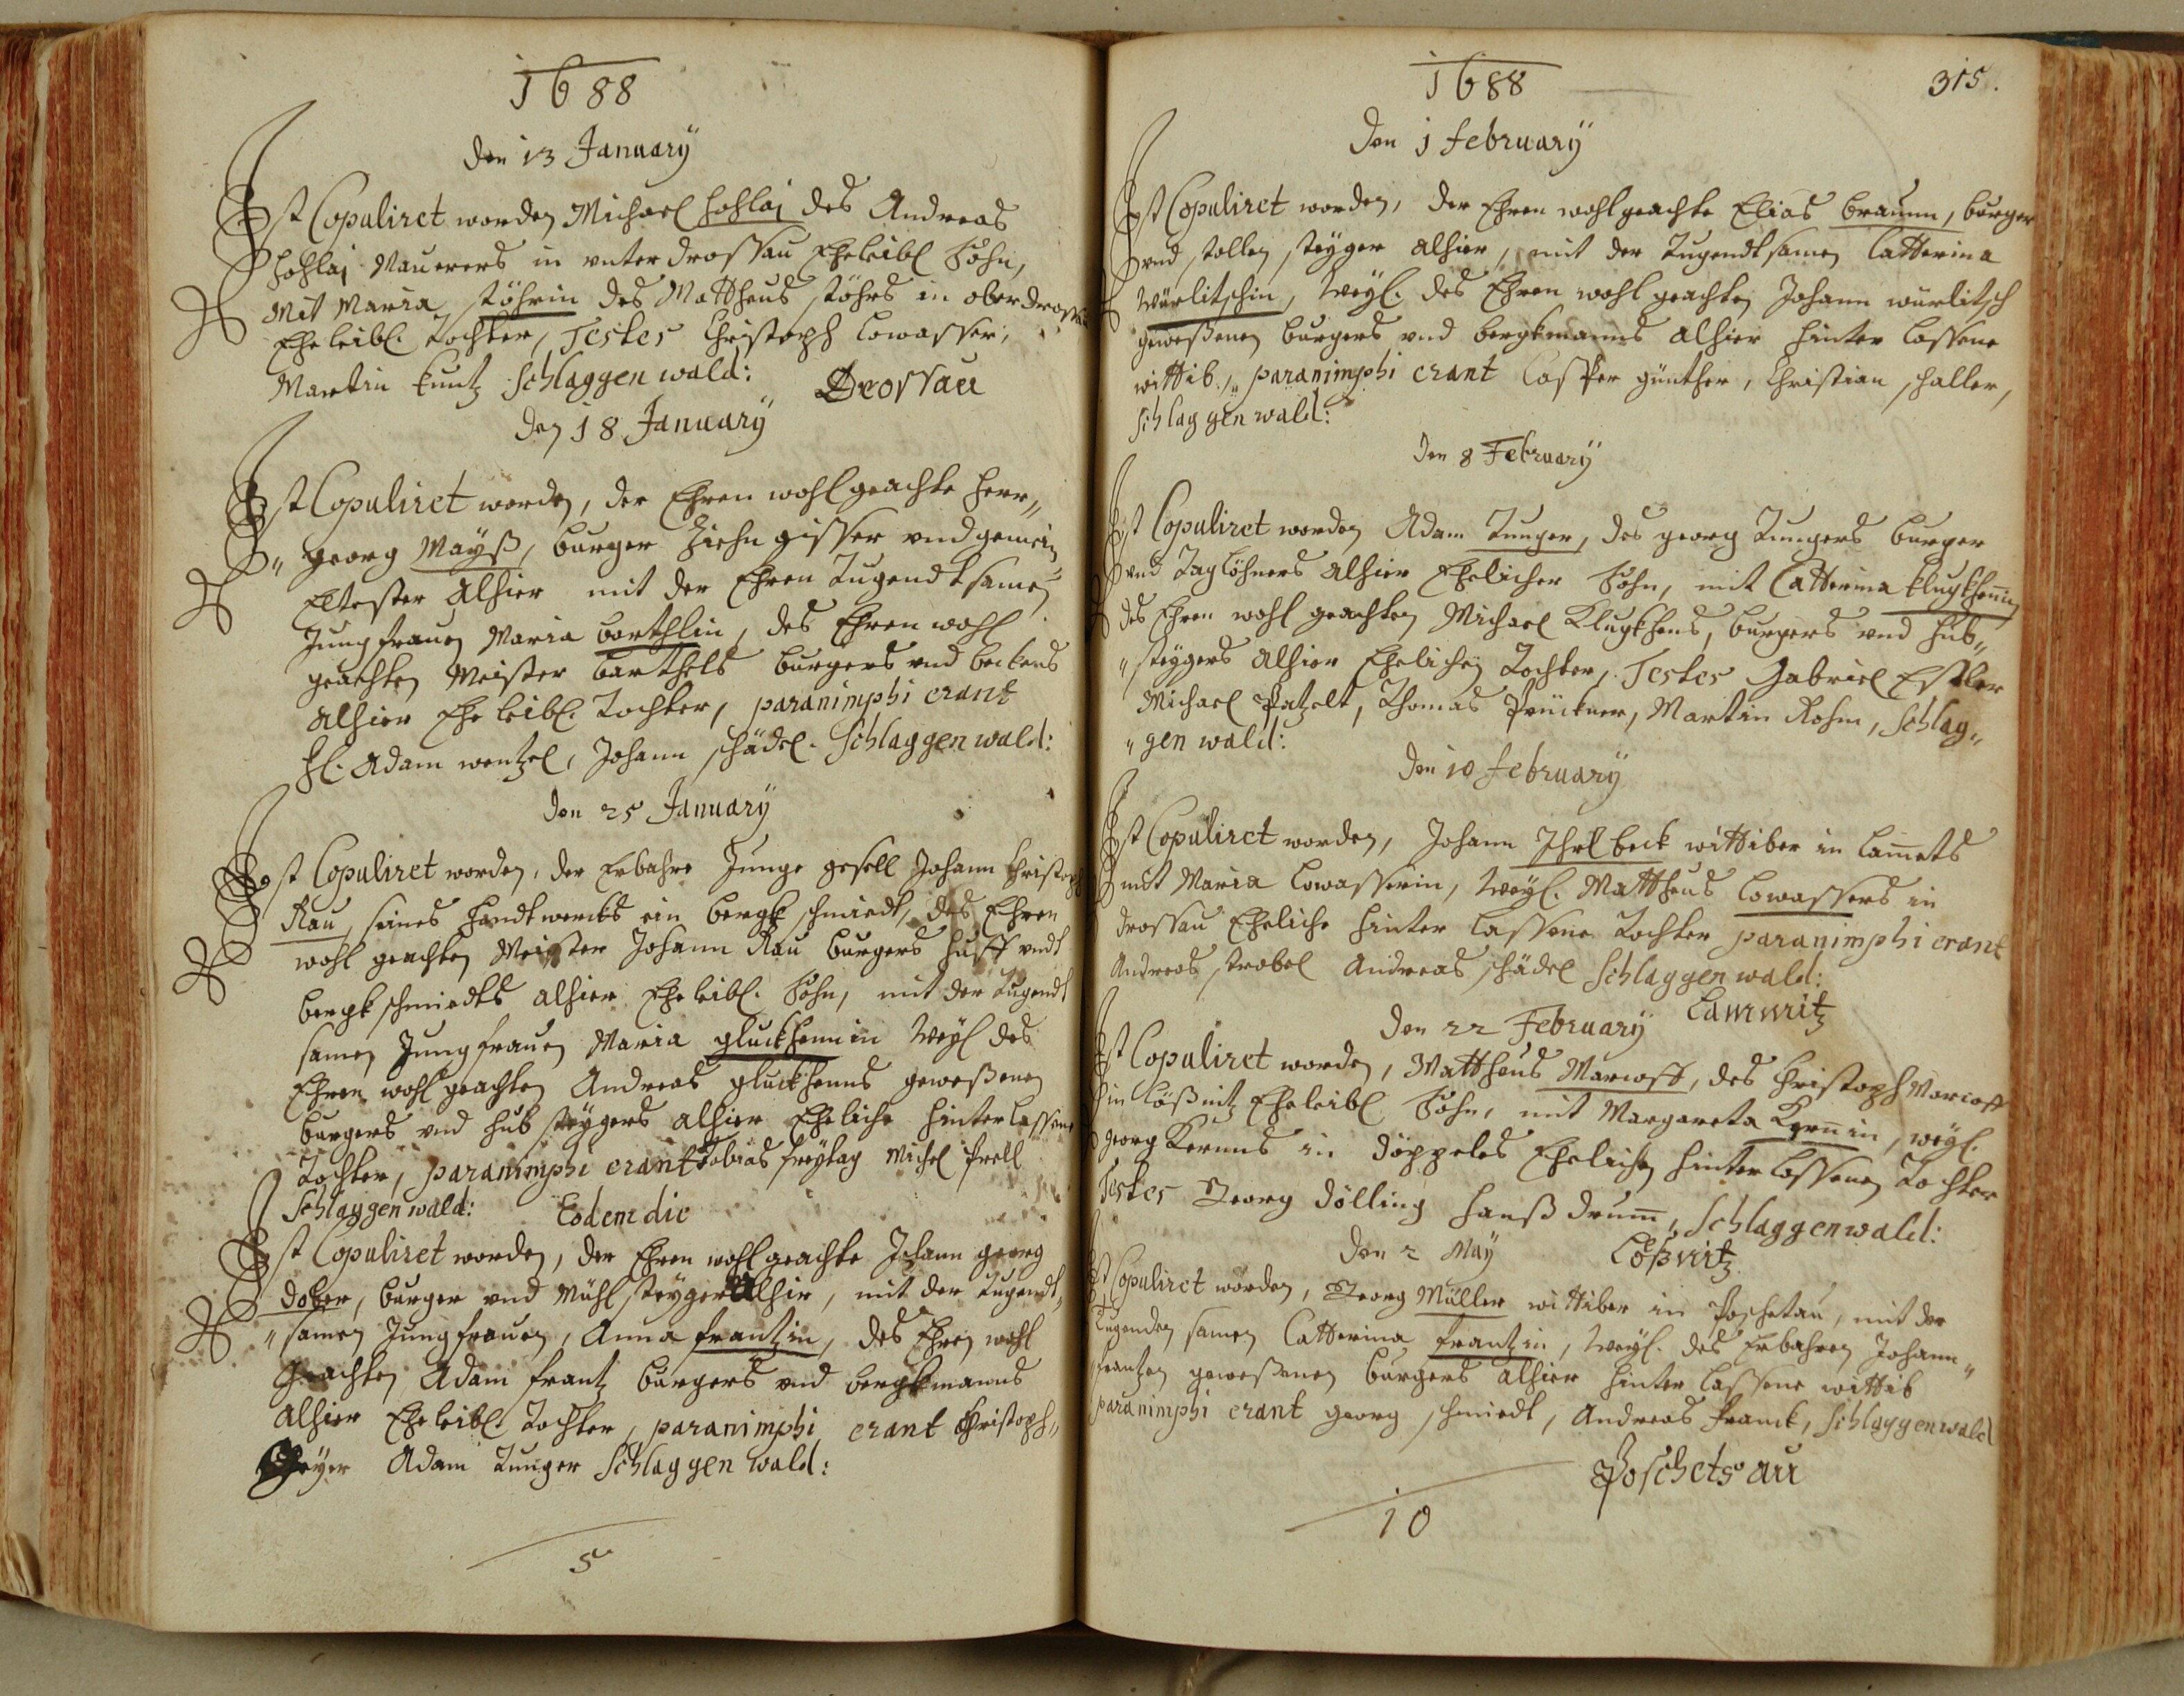 1688
den 13 January
Ist Copuliret worden Michael Hohlai des Andreas
Hohlai Mauerers in unter drossau Eheleibl Sohn,
Mit Maria Stöhrin des Mattheus Stöhrs in ober drossau
Eheleibl. Tochter, Testes Christoph Lowasser,
Martin Kuntz Schlaggenwald: Drossau
den 18 January
Ist Copuliret worden, der Ehren wohl geachte Herr
georg Mayß, burger Ziehn gisser und gemein
Eltester alhier mit der Ehren Tugendtsamen
Jungfrauen Maria barthlin, des Ehren wohl
geachten Meister barthels burgers und beckens
alhier Eheleibl. Tochter, paranimphi erant
H. Adam wentzel, Johann schädel. Schlaggenwald:
den 25 January
Ist Copuliret worden, der Erbahre Junge gesell Johann Christoph
Rau, seines handtwercks ein bergk schmiedt, des Ehren
wohl geachten Meister Johann Rau burgers huff undt
bergk schmiedts alhier Eheleibl. Sohn, mit der Tugendt
samen Jungfrauen Maria gluckhennin Weyl des
Ehren wohl geachten Andreas gluckhenns geweßenen
burgers und hub steygers alhier Eheliche hinterlassene
Tochter, paranimphi erant Tobias freytag Michel prell
Schlaggenwald: Eodem die
Ist Copuliret worden, der Ehren wohl geachte Johann georg
dotzer, burger und Mühl steyger alhir, mit der Tugendt
samen Jungfrauen, Anna frantzin, des Ehren wohl
geachten Adam frantz burgers und bergkmanns
alhier Eheleibl. Tochter, paranimphi erant Christoph
Adam Tunger Schlaggenwald:
5
1688
315.
den 1 february
Ist Copuliret worden, der Ehren wohl geachte Elias braunn, burger
und stollen steyger alhier, mit der Tugendtsamen Catterina
Würlitschin, Weyl. des Ehren wohl geachten Johann würlitsch
geweßenen burgers und bergkmanns alhier hinter lassene
wittib, paranimphi erant Casper günther, Christian schaller,
Schlaggenwald:
den 8 February
Ist Copuliret worden Adam Tunger, des georg Tungers burger
und Taglöhners alhier Ehelicher Sohn, mit Catterina klugkhennin
des Ehren wohl geachten Michael Klugkhens, burgers und hub
steygers alhier Ehelichen Tochter, Testes Gabriel Estler
Michael Patzelt, Thomas Prückner, Martin Rohm, Schlag
gen wald:
den 10 february
Ist Copuliret worden, Johann Ihrlbeck wittiber in Lamets
mit Maria Lowasserin, Weyl. Mattheus Lowassers in
drossau Eheliche hinter lassene Tochter paranimphi erant
Andreas strobel Andreas schädel Schlaggenwald:
den 22 February Lamnitz
Ist Copuliret worden, Mattheus Marioff, des Christoph Marioff
in Lößnitz Eheleibl Sohn, mit Margareta Kernin, weyl.
georg Kernns in döppeles Ehelichen hinterlassenen Tochter
Testes Georg dölling Hanß drumm, Schlaggenwald:
den 2 May Lößnitz
Ist Copuliret worden, Georg Müller wittiber in Poschetau, mit der
Tugenden samen Catterina frantzin, Weyl. des Erbahren Johann
frantzen geweßenen burgers alhier hinter lassene wittib
paranimphi erant georg schmiedt, Andreas franck, Schlaggenwald
Poschetsau
10